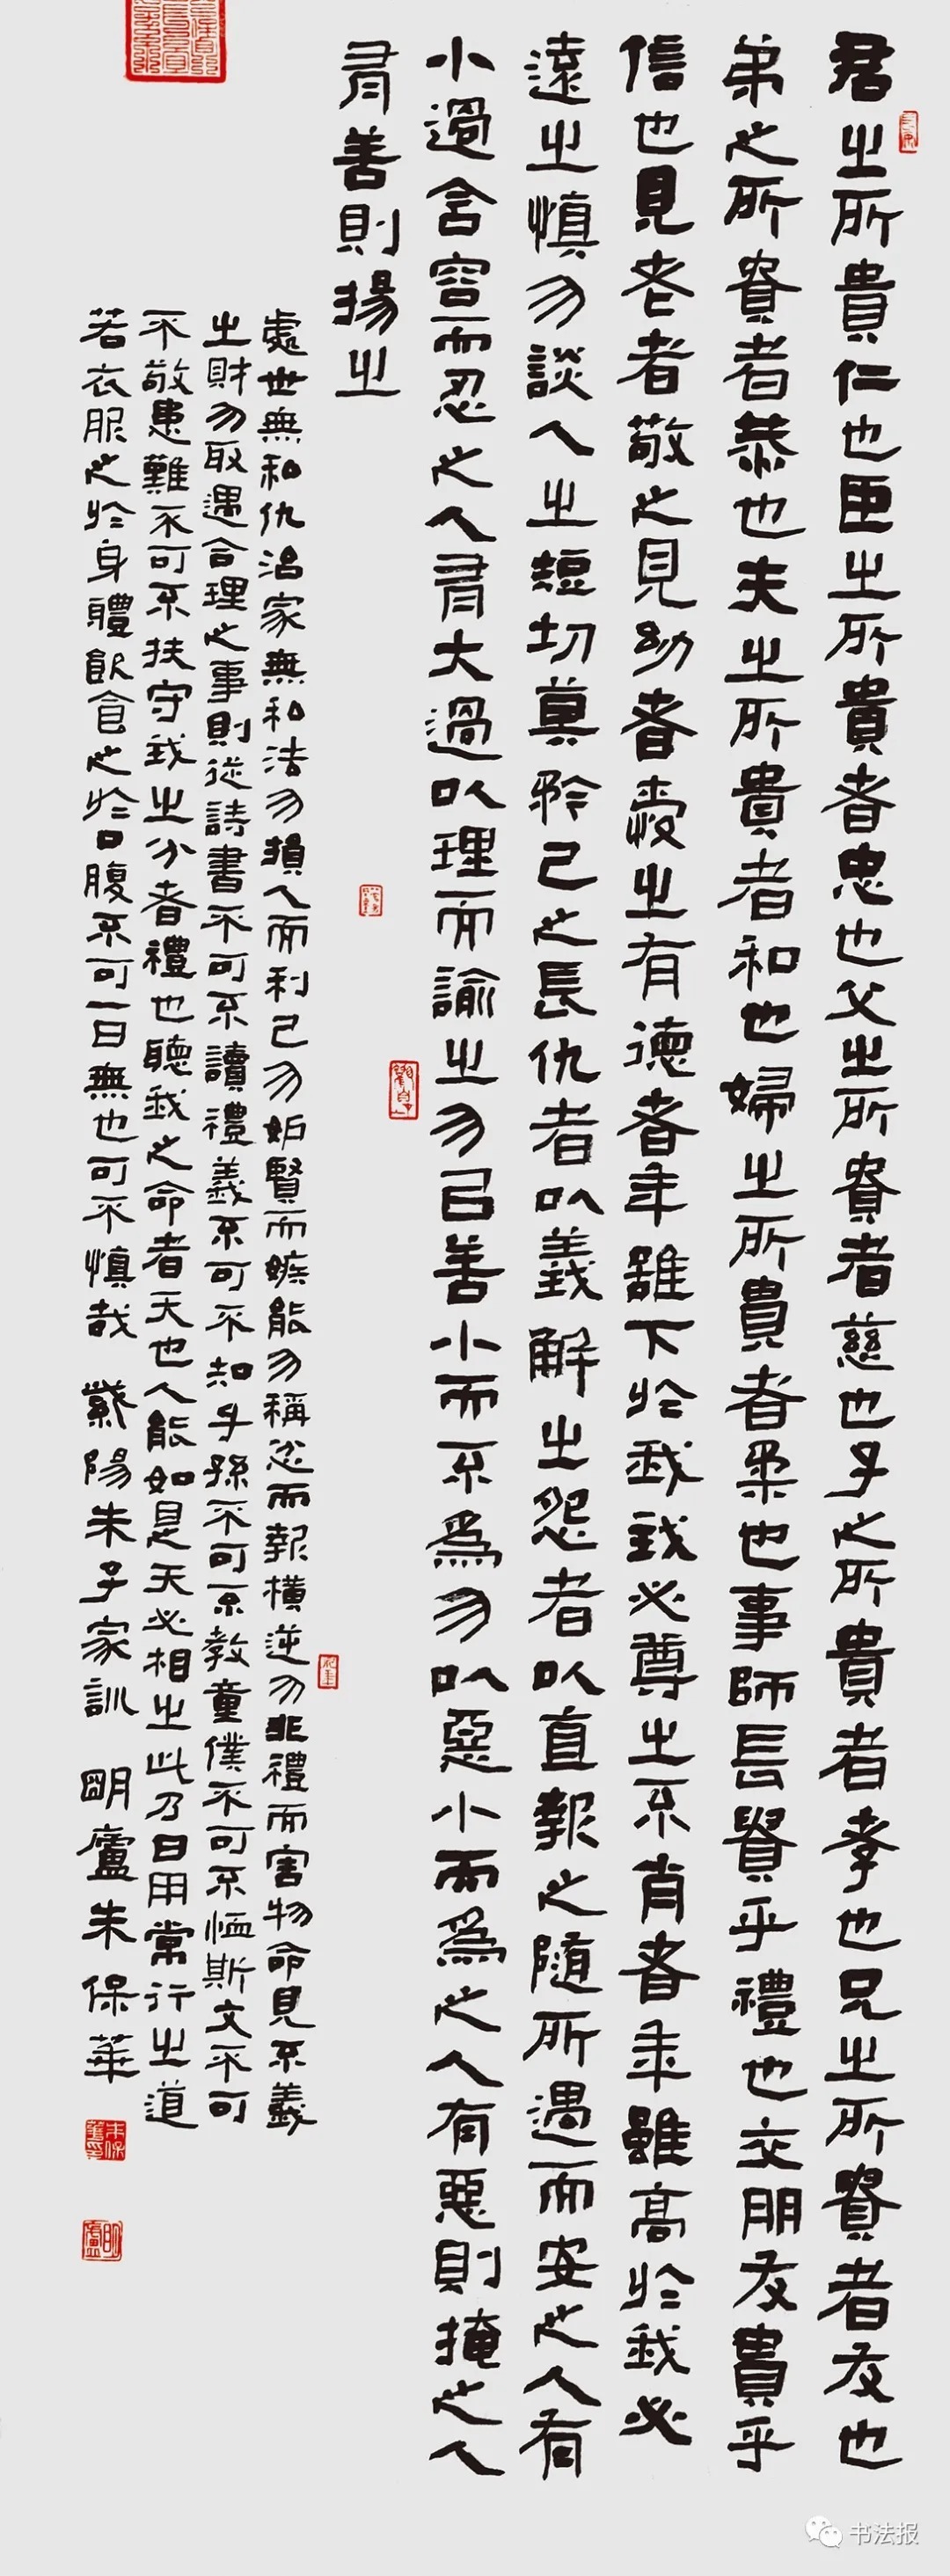 君之所貴仁也臣之所貴者忠也父之所貴者慈也子之所貴者孝也兄之所貴者友也
弟之所貴者恭也夫之所貴者和也婦之所貴者柔也事師長貴乎禮也交朋友貴乎
信也見老者敬之見幼者愛之有德者年雖下於我我必尊之不肖者年雖高於我必
遠之慎勿談人之短切莫矜己之長仇者以義解之怨者以直報之隨所遇而安之人有
小過含容而忍之人有大過以理而諭之勿㠯善小而不為勿以惡小而為之人有惡則掩之人
有善則揚之
處世無私仇治家無私法勿損人而利己勿妒賢而嫉能勿稱忿而報橫逆勿非禮而害物命見不義
之財勿取遇合理之事則從詩書不可不讀禮義不可不知子孫不可不教童僕不可不恤斯文不可
不敬患難不可不扶守我之分者禮也聽我之命者天也人能如是天必相之此乃日用常行之道
若衣服之於身體飲食之於口腹不可一日無也可不慎哉 紫陽朱子家訓 明廬朱保華
书法报